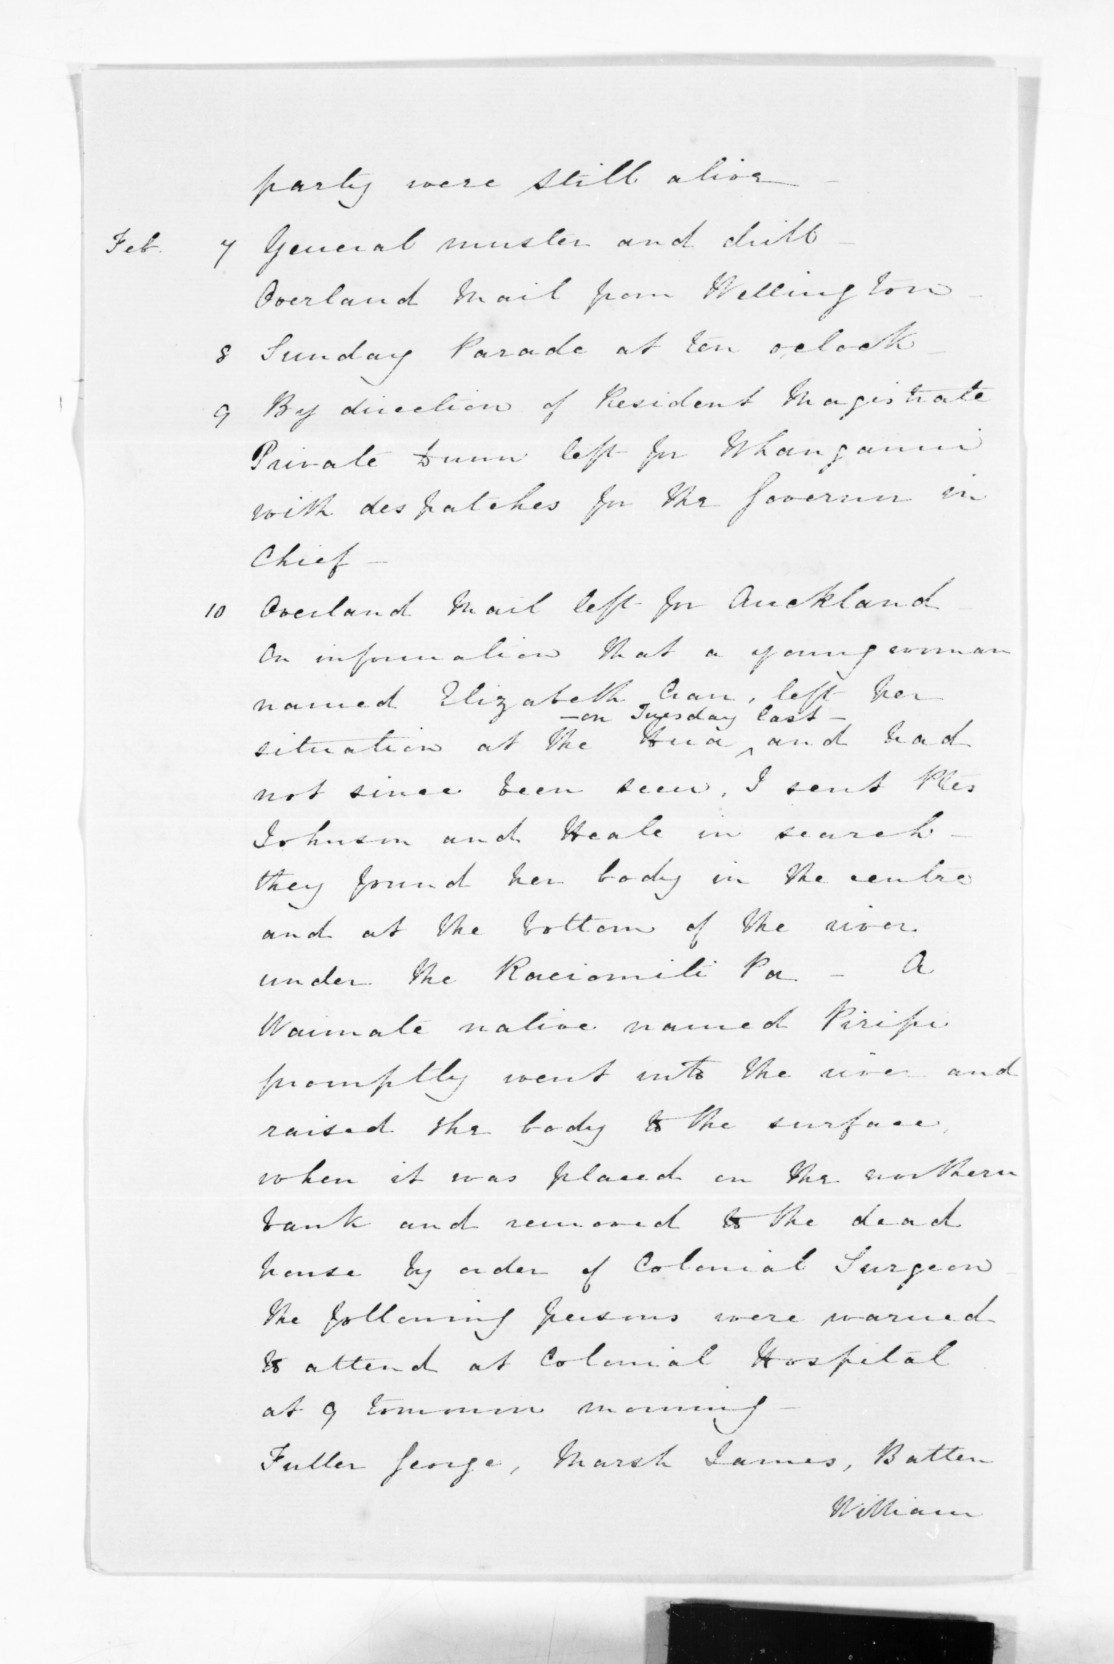 party were still alive -
Feb. 7 General muster and drill -
Overland Mail from Wellington -
8 Sunday Parade at ten o'clock -
9 By direction of Resident Magistrate
Private Dunn left for Whanganui
with despatches for the Governor in
Chief -
10 Overland Mail left for Auckland -
On information that a young woman
named Elizabeth left her
- on Tuesday last -
situation at the Hua ^ and had
not since been seen, I sent Ptes
Johnson and Heale in search -
they found her body in the centre
and at the bottom of the river
under the Pa - A
Waimate native named Piripi
promptly went into the river and
raised the body to the surface,
when it was placed on the northern
bank and removed to the dead
house by order of Colonial Surgeon -
the following persons were warned
to attend at Colonial Hospital
at 9 tomorrow morning -
Fuller George, Marsh James, Batten
William